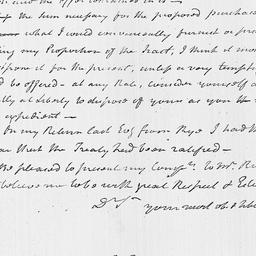 the sum necessary for the proposed purchase
what I would conveniently furnish or pro
my Proportion of the Tract, I think it mo
pone it for the present, unless a very tempt
d be offered – at any Rate, consider yourself a
lly at Liberty to dispose of yours as you
expedient –
In my Return Last Eveg from Rye I had th
that the Treaty had been ratified –
be pleased to present my Comps. to Mr. R
believe me to be with great Respect & Este
Dr Sr your most obt & hble